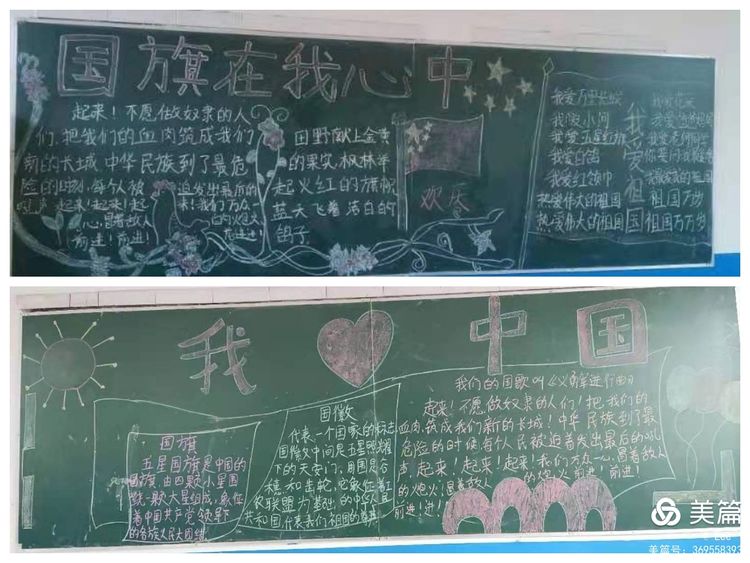 国旗在我心中
起来！不愿做奴隶的人
们，把我们的血肉筑成我们
新的长城，中华民族到了最危
险的时刻，每个人被迫发出最后的
吼声 起来！起来！起来！我们万众
一心，冒着敌人的炮火
前进！前进！
田野献上金黄
的果实，枫林举
起火红的旗帜
蓝天飞着洁白的
鸽子
欢庆
我爱祖国
我爱万里长城
我爱小河
我爱五星红旗
我爱白鸽
我爱红领巾
热爱伟大的祖国
热爱伟大的祖国
我爱花朵
祖国万岁
祖国万万岁
我 中国
国旗
五星国旗是中国的
国旗，由四颗小星围
绕一颗大星组成，象征
着中国共产党领导下
的各族人民大团结
国徽
代表一个国家的标志
国徽中间是五星照耀
下的天安门，周围是谷
穗和齿轮，它象征着工
农联盟为基础的中华人民
共和国代表我们祖国的尊严
我们的国歌叫《义勇军进行曲》
起来！不愿做奴隶的人们！把我们的
血肉，筑成我们新的长城！中华民族到了最
危险的时候，每个人民被迫着发出最后的吼
声，起来！起来！起来！我们万众一心，冒着敌人
的炮火，冒着敌人的炮火前进！前进！
前进！进！
美篇
美篇号：369558393